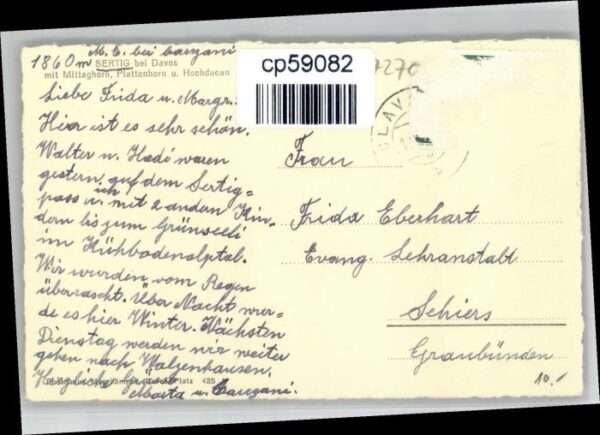 M. C. bei Cavegani
1860 m SERTIG bei Davos
mit Mittaghorn, Plattenhorn u. Hochducan
Liebe Frida u. Margr.
Hier ist es sehr schön.
Walter u. Hadi waren
gestern auf dem Sertig=
pass u. ich mit 2 andern Kin-
dern bis zum Grünseeli
im Kühbodenalptal.
Wir wurden vom Regen
überrascht. Über Nacht wur-
de es hier Winter. Nächsten
Dienstag werden wir weiter
gehen nach Walzenhausen.
Herzliche Grüsse
Marta u.
Platz 435
cp59082
7270
Frau
Frida Eberhart
Evang. Lehranstalt
Schiers
Graubünden
10.-